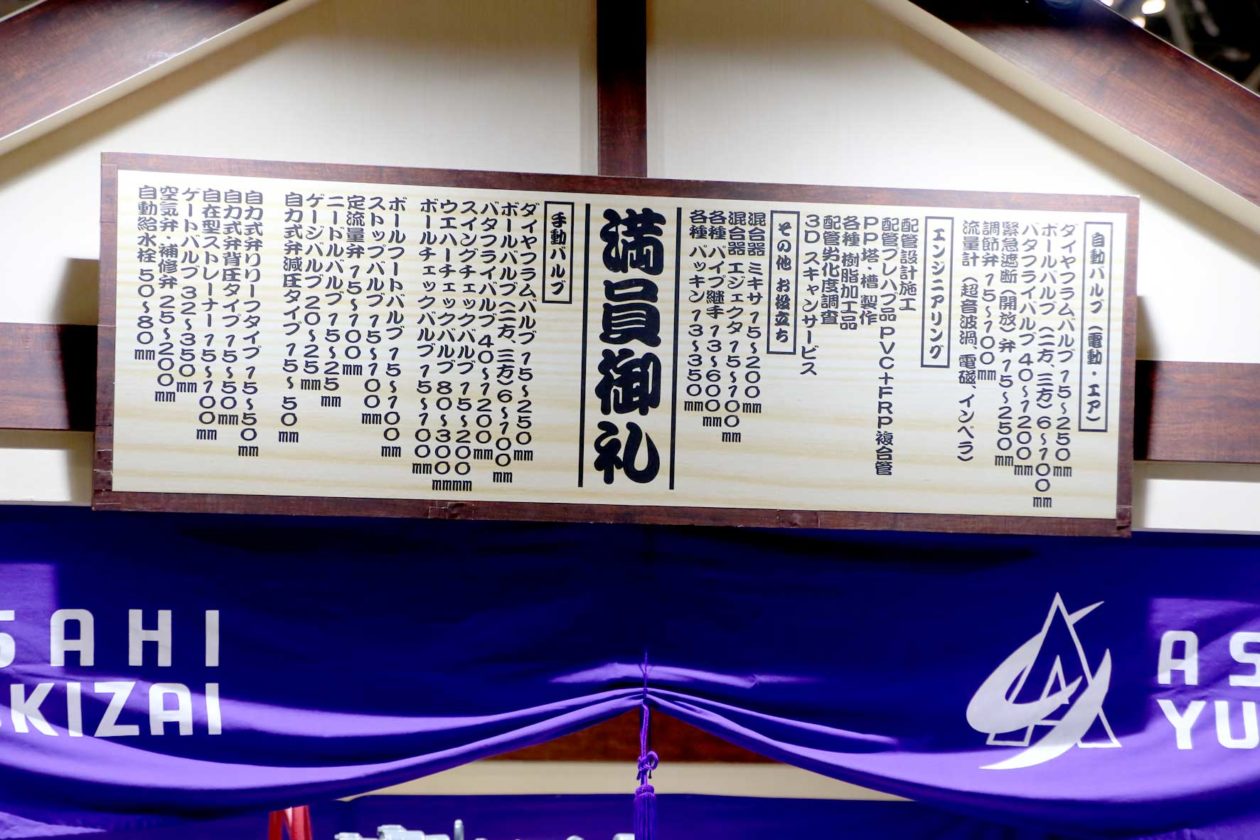 自動バルブ（電動・エアー）
ダイヤフラムバルブ１５～２５０mm
ボールバルブ（二方、三方）６～１００mm
バタフライバルブ４０～１２００mm
緊急遮断（開放）弁１５～２５０mm
調節弁１５～１００mm
流量計（超音波渦、電磁、インペラ）
エンジニアリング
配管設計施工
配管プレハブ品ＰＶＣ＋ＦＲＰ複合管
ＰＰ塔・槽製作
各種樹脂加工品
配管劣化度調査
３Ｄスキャンサービス
その他お役立ち
混合器ミキサ１５～２００mm
混合器エジェクタ１５～１００mm
各種パイプ継手１３～６００mm
各種パッキン１３～３５０mm
満員御礼
手動バルブ
ダイヤフラムバルブ１５～２５０mm
ボールバルブ（二方、三方）６～１００mm
バタフライバルブ４０～１２００mm
スイングチェックバルブ１５～２００mm
ウエハーチェックバルブ８０～３００mm
ボールチェックバルブ１５～１００mm
ボールフートバルブ１５～１００mm
ストップバルブ１５～１００mm
定流量弁１５～１００mm
ニードルバルブ１５～２５mm
ゲージバルブ２０～２５mm
自力式弁減圧タイプ１５～５０mm
自力式弁リリーフタイプ１５～５０mm
自力式弁背圧タイプ１５～５０mm
自在型ストレーナー１５～１００mm
ゲートバルブ３２～３５０mm
空気弁、補修弁２５～２００mm
自動給水栓５０～８０mm
SAHI
KIZAI
AS
YU